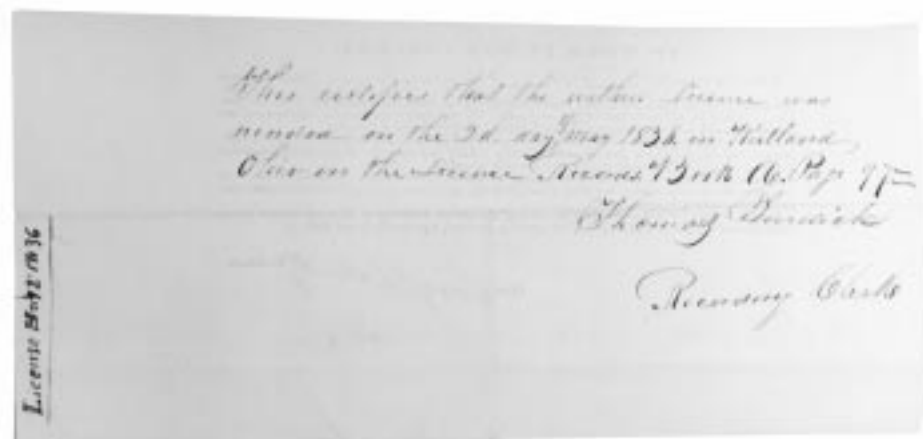 This certifies that the within license was
recorded on the 2d. day of May 1836 in Kirtland,
Ohio in the License Records Book A. Page 97
Thomas Burdick
Recording Clerk
License 1836